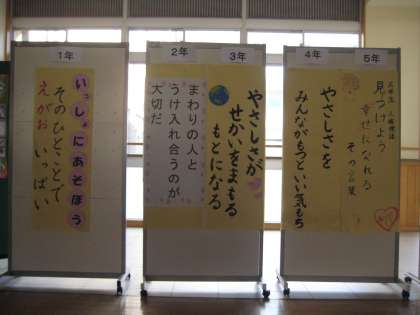 1年
いっしょにあそぼう
そのひとことで
えがお いっぱい
2年
まわりの人と
うけ入れ合うのが
大切だ
3年
やさしさが
せかいをまもる
もとになる
4年
やさしさを
みんながもつといい気もち
5年
見つけよう
幸せになれる
その言葉